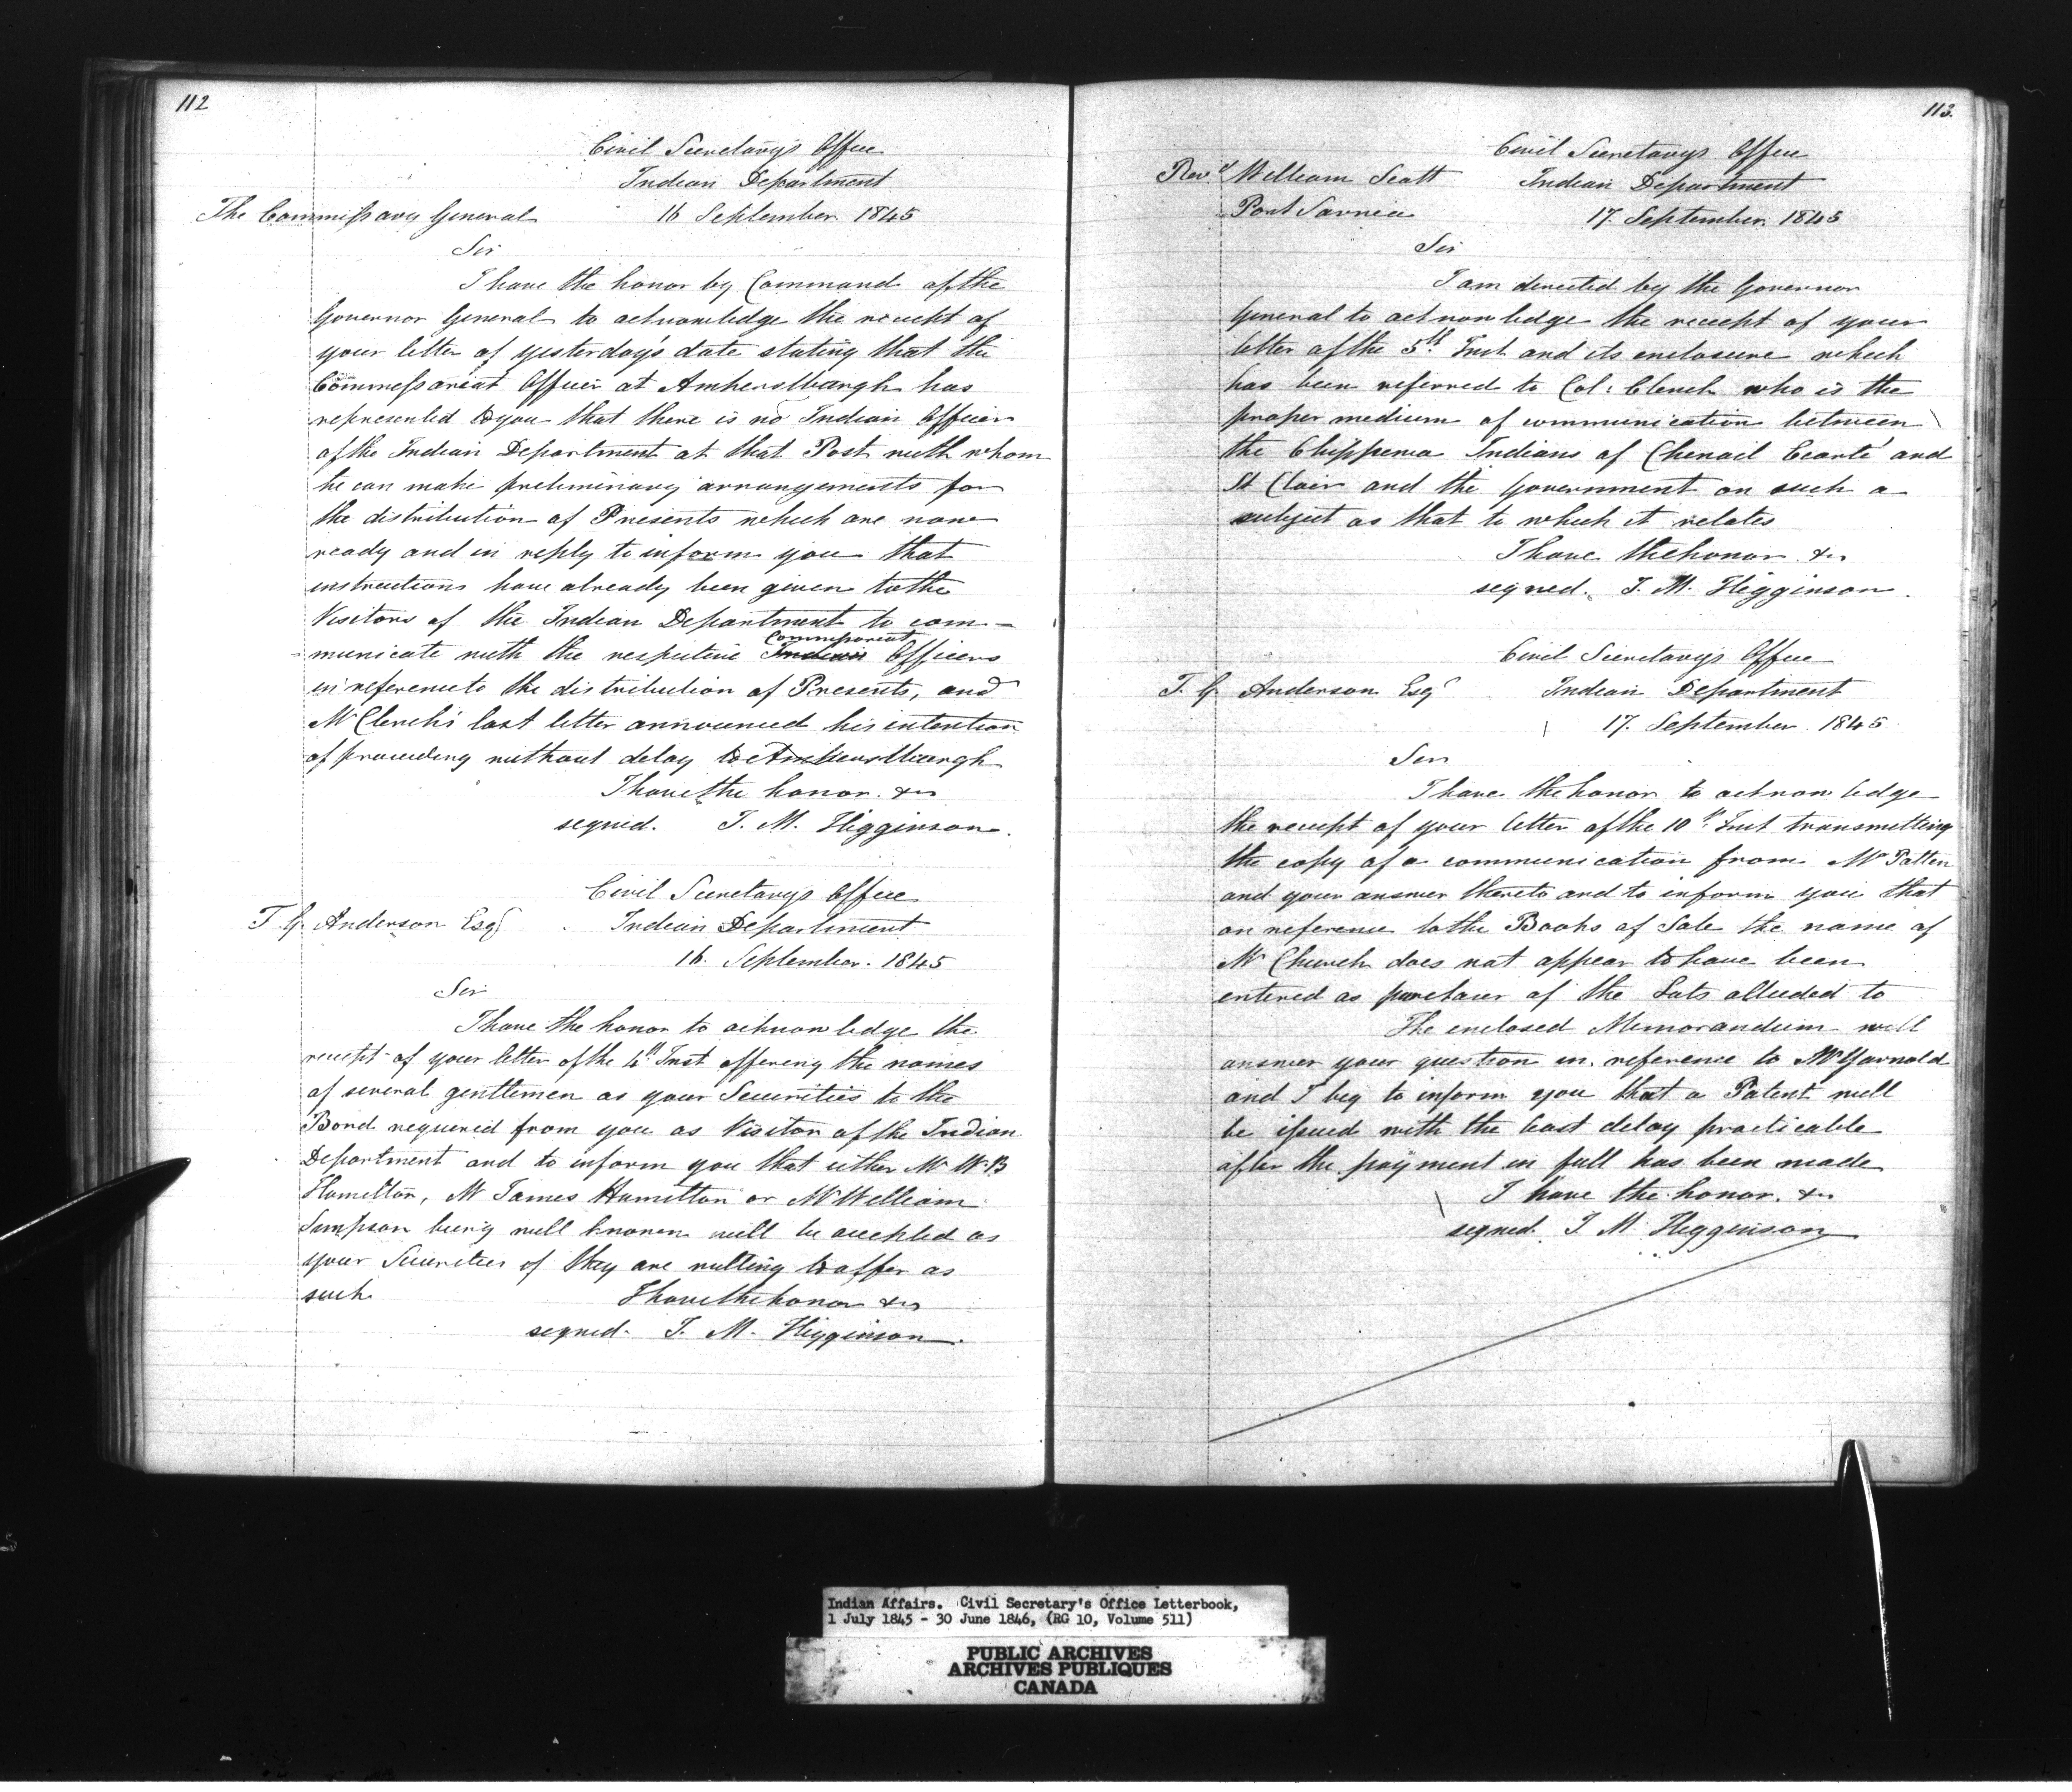 112
Civil Secretary's Office
Indian Department
The Commissary General 16 September 1845
Sir
I have the honor by Command of the
Governor General to acknowledge the receipt of
your letter of yesterday's date stating that the
Commissariat Officer at Amherstburgh has
represented to you that there is no Indian Officer
of the Indian Department at that Post with whom
he can make preliminary arrangements for
the distribution of Presents which are now
ready and in reply to inform you that
instructions have already been given to the
Visitors of the Indian Department to com-
Commissariat
-municate with the respective Indian Officers
in reference to the distribution of Presents, and
Mr Clench's last letter announced his intention
of proceeding without delay to Amherstburgh
I have the honor &c
signed. J. M. Higginson.
Civil Secretary's Office
T. G. Anderson Esqr Indian Department
16. September. 1845
Sir
I have the honor to acknowledge the
receipt of your letter of the Inst offering the names
of several gentlemen as your Securities to the
Bond required from you as Visitor of the Indian
Department and to inform you that either Mr W. B
Hamilton, Mr James Hamilton or Mr William
Simpson being well known will be accepted as
your Securities if they are willing to offer as
such I have the honor &c
signed. J. M. Higginson.
113.
Civil Secretarys Office
Revd William Scott Indian Department
Port Sarnia 17. September 1845
Sir
I am directed by the Governor
General to acknowledge the receipt of your
letter of the 5th Inst and its enclosure which
has been referred to Col: Clench who is the
proper medium of communication between
the Chippewa Indians of Chenail Ecarté and
St Clair and the Government on such a
subject as that to which it relates
I have the honor &c
signed. J. M. Higginson.
Civil Secretary's Office
T. G. Anderson Esqr Indian Department
17. September. 1845
Sir
I have the honor to acknowledge
the receipt of your letter of the 10th Inst transmitting
the copy of a communication from Mr Patten
and your answer thereto and to inform you that
on reference to the Books of Sale the name of
Mr Church does not appear to have been
entered as purchaser of the Lots alluded to
The enclosed Memorandum will
answer your question in reference to Mr Yarnold
and I beg to inform you that a Patent will
be issued with the least delay practicable
after the payment in full has been made
I have the honor. &c
signed J. M. Higginson
Indian Affairs. Civil Secretary's Office Letterbook,
1 July 1845 - 30 June 1846, (RG 10, Volume 511)
PUBLIC ARCHIVES
ARCHIVES PUBLIQUES
CANADA